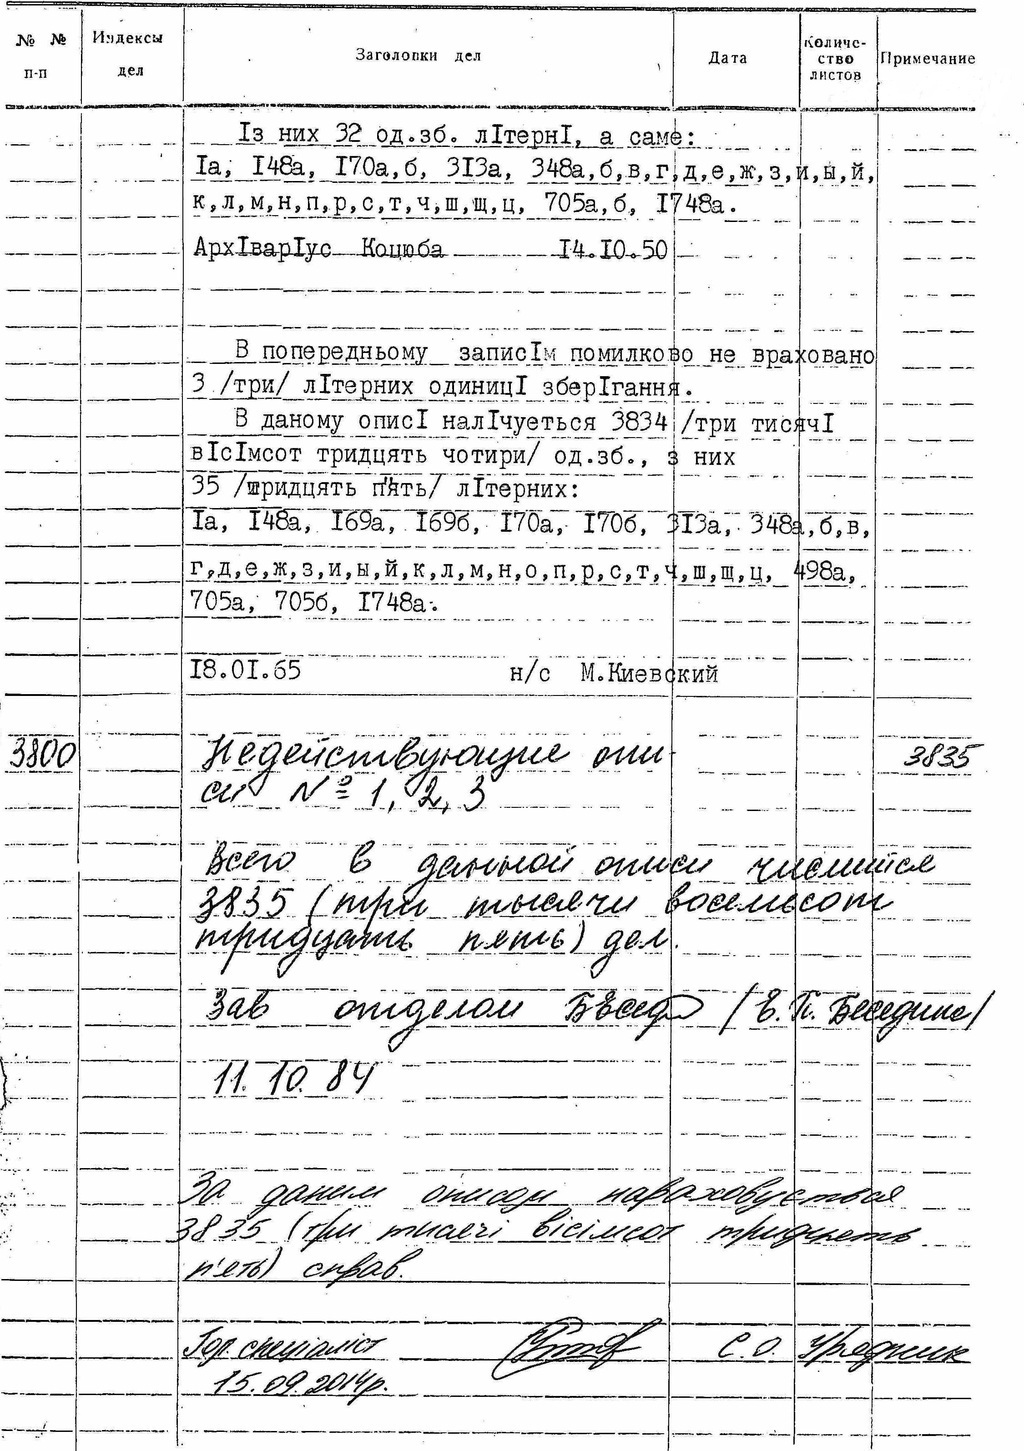 № № п-п
Индексы дел
Заголовки дел
Дата
Количество листов
Примечание
Із них 32 од.зб. лІтернІ, а саме:
Іа, І48а, І70а,б, 3ІЗа, 348а,б,в,г,д,е,ж,з,и,ы,й,
к,л,м,н,п,р,с,т,ч,ш,щ,ц, 705а,б, І748а.
АрхІварІус Коцюба І4.ІО.50
В попередньому записІм помилково не враховано
3 /три/ лІтерних одиницІ зберІгання.
В даному описІ налІчуеться 3834 /три тисячІ
вІсІмсот тридцять чотири/ од.зб., з них
35 /тридцять п'ять/ лІтерних:
Іа, І48а, І69а, І69б, І70а, І70б, 3ІЗа, 348а,б,в,
г,д,е,ж,з,и,ы,й,к,л,м,н,о,п,р,с,т,ч,ш,щ,ц, 498а,
705а, 705б, І748а.
І8.0І.65 н/с М.Киевский
3800 Недействующие опи- 3835
си № 1, 2, 3
Всего в данной описи числится
3835 (три тысячи восемьсот
тридцать пять) дел.
Зав отделом /Е.П. Беседина/
11.10.84
За даним описом нараховується
3835 (три тисячі вісімсот тридцять
п'ять) справ.
Гол. спеціаліст С.О. Урядник
15.09.2014р.